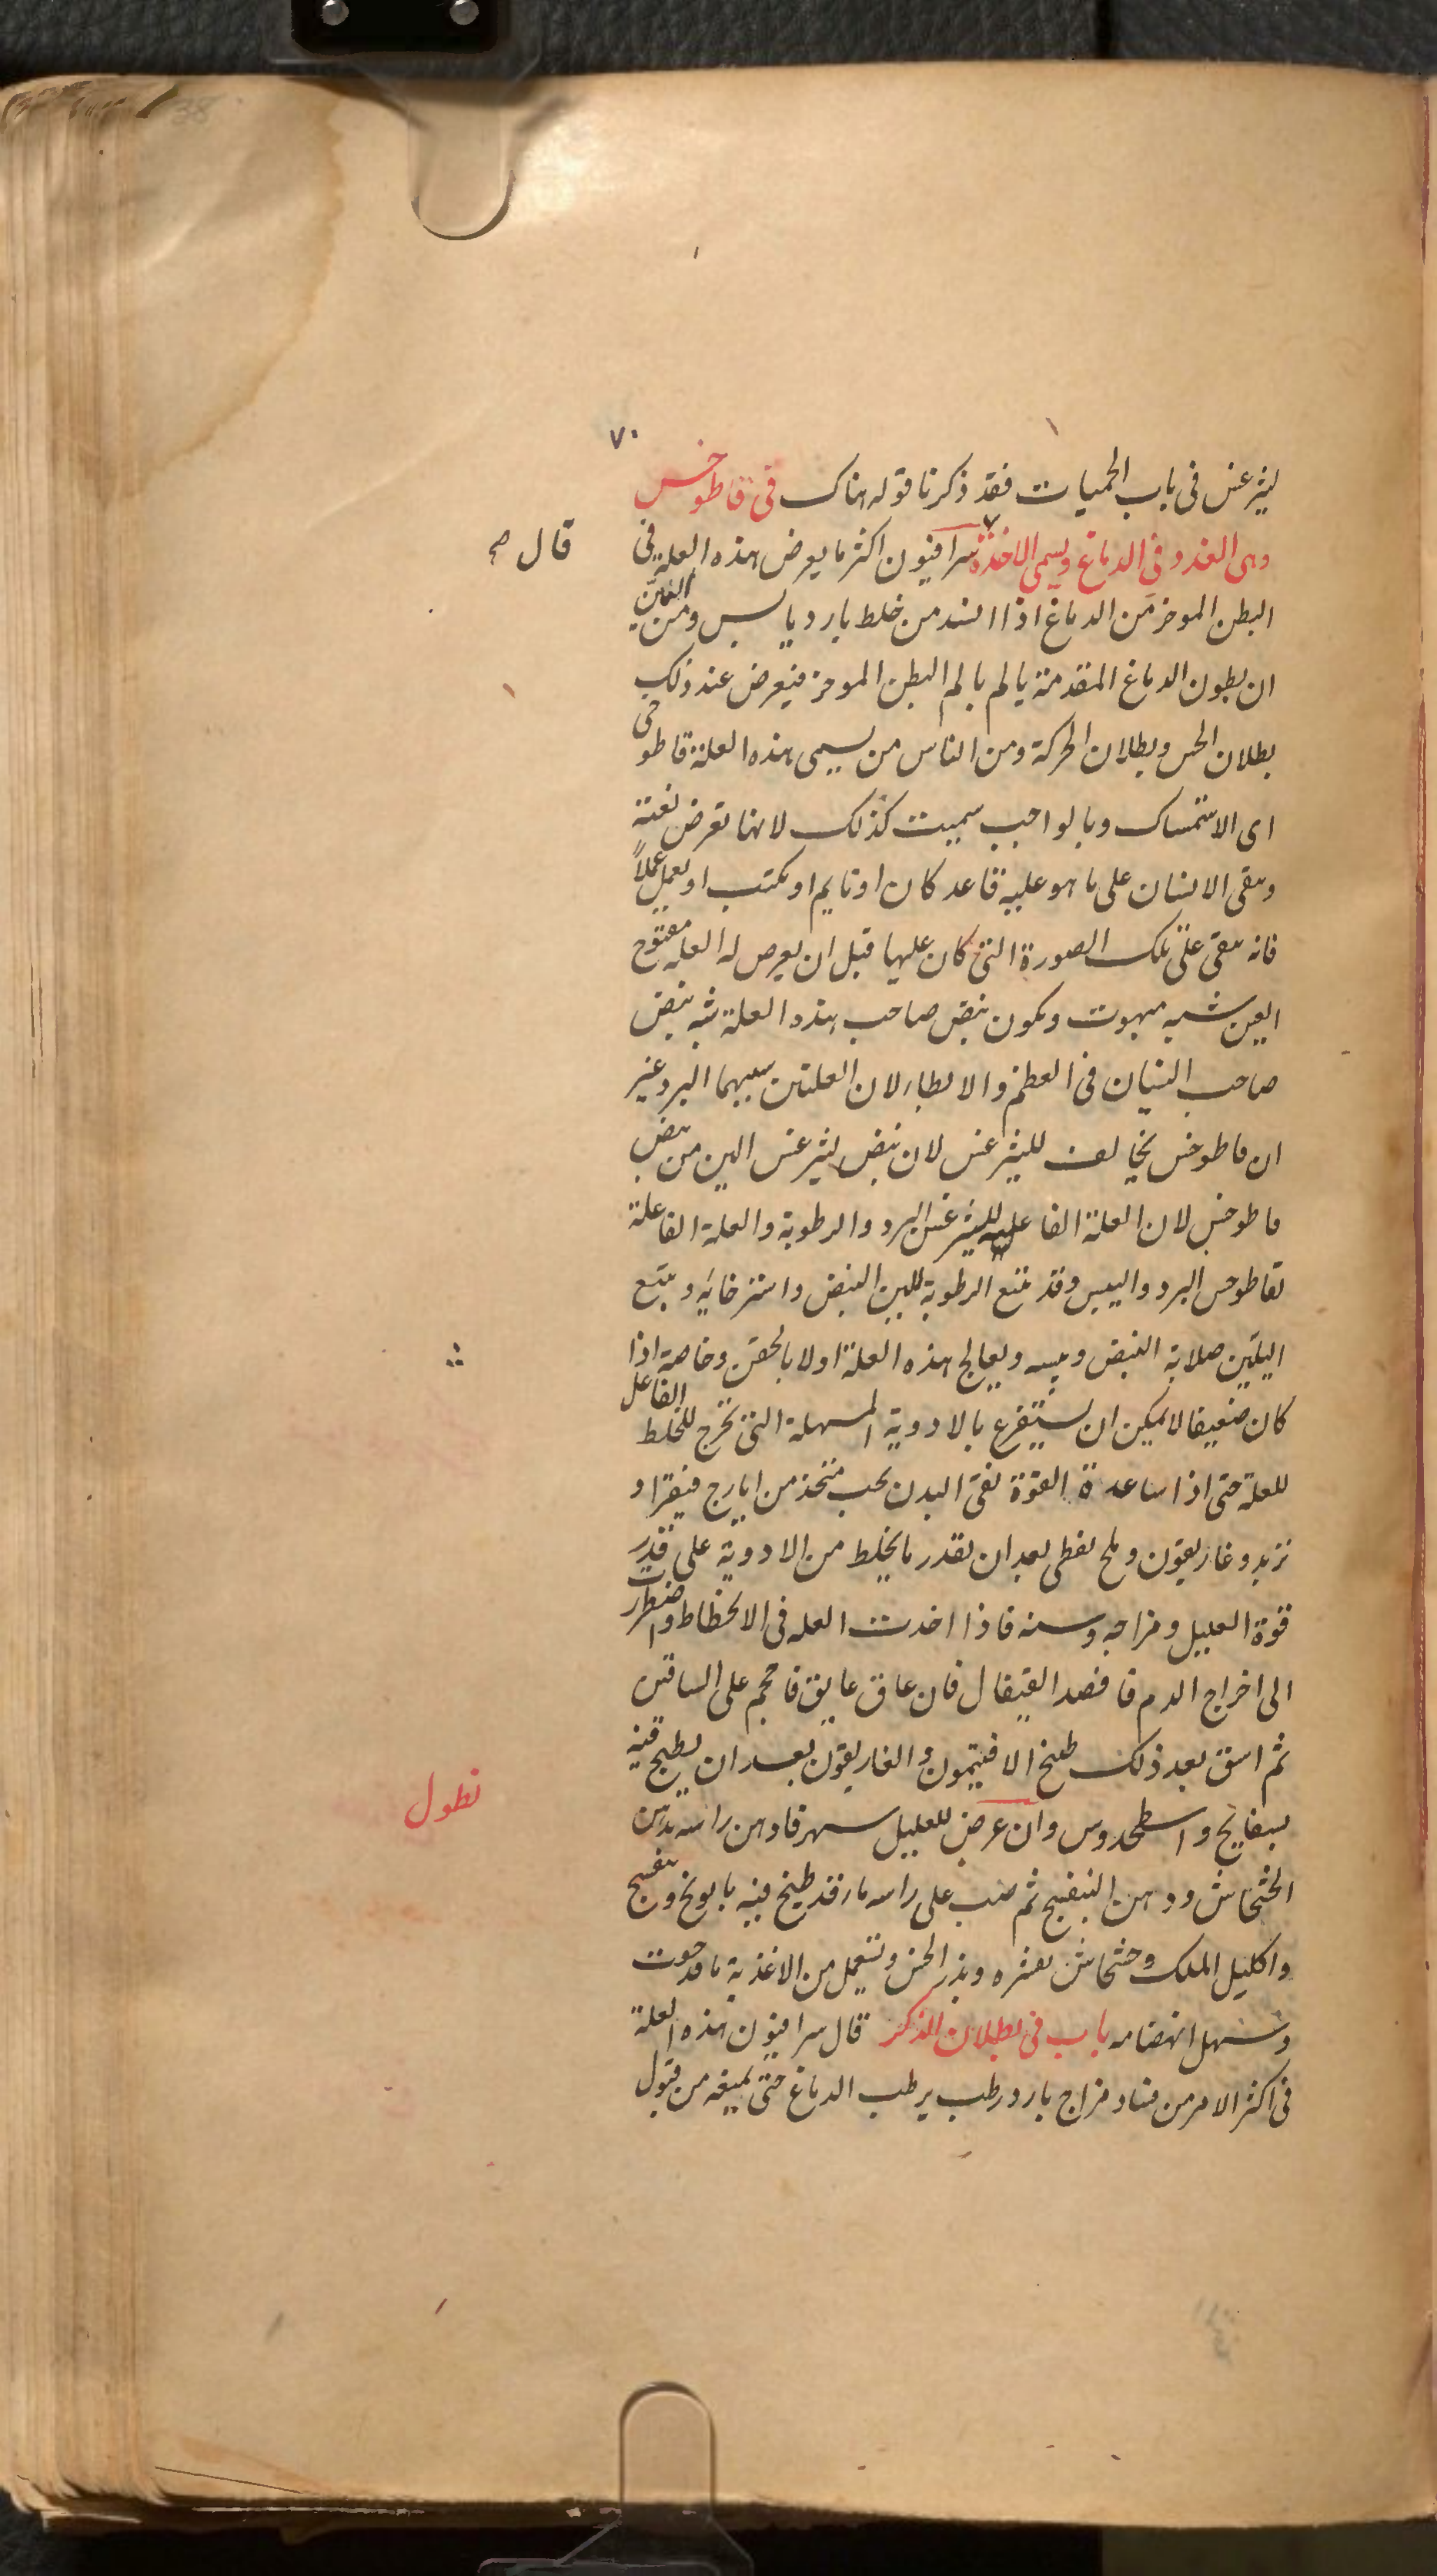 ٧٠
ليثرغس فى باب الحميات فقد ذكرنا قوله هناك فى قاطوخس
وهى الغدو فى الدماغ ويسمى الاخذة سرافيون اكثر ما يعرض هذه العلة فى
قال صح
البطن الموخر من الدماغ اذا انسد من خلط بارد يابس ومن
ان بطون الدماغ المتقدمة يالم بالم البطن الموخر فيعرض عند ذلك
بطلان الحس وبطلان الحركة ومن الناس من يسمى هذه العلة قاطوخى
اى الاستمساك وبالواجب سميت كذلك لانها تعرض بغتة
ويبقى الانسان على ما هو عليه قاعد كان او نايم او يكتب او يعمل عملاً
فانه يبقى على تلك الصورة التى كان عليها قبل ان يعرض له العله مفتوح
العين شبه مبهوت ويكون نبض صاحب هذه العلة شبه نبض
صاحب النسيان فى العظم والابطاء لان العلتين سببهما البرد غير
ان قاطوخس يخالف لليثرغس لان نبض ليثرغس الين من نبض
قاطوخس لان العلة الفاعلية لليثرغس البرد والرطوبة والعلة الفاعلة
لقاطوخس البرد واليبس وقد يتبع الرطوبة للين النبض واسترخائه ويتبع
اليبس صلابة النبض ويبسه ويعالج هذه العلة اولا بالحقن وخاصة اذا
كان ضعيفا لا يمكن ان يستفرغ بالادوية المسهلة التى تخرج للخلط الفاعل
للعلة حتى اذا ساعدة القوة نقى البدن بحب متخذ من ايارج فيقرا و
تربد وغاريقون وملح نفطى بعد ان يقدر ما يخلط من الادوية على قدر
قوة العليل ومزاجه وسنه فاذا اخذت العله فى الانحطاط واضطررت
الى اخراج الدم فافصد القيفال فان عاق عايق فاحجم على الساقين
ثم اسق بعد ذلك طبيخ الافتيمون والغاريقون بعد ان يطبخ فيه
بسفايج واسطخدوس وان عرض للعليل سهر فادهن راسه بدهن
نطول
الخشخاش ودهن البنفسج ثم صب على راسه ماء قد طبخ فيه بابونج وبنفسج
واكليل الملك وخشخاش بقشره وبذر الخس ويستعمل من الاغذية ما قد جودت
وسهل انهضامه باب فى بطلان الذكر قال سرافيون هذه العلة
فى اكثر الامر من فساد مزاج بارد رطب يرطب الدماغ حتى يمنعه من قبول